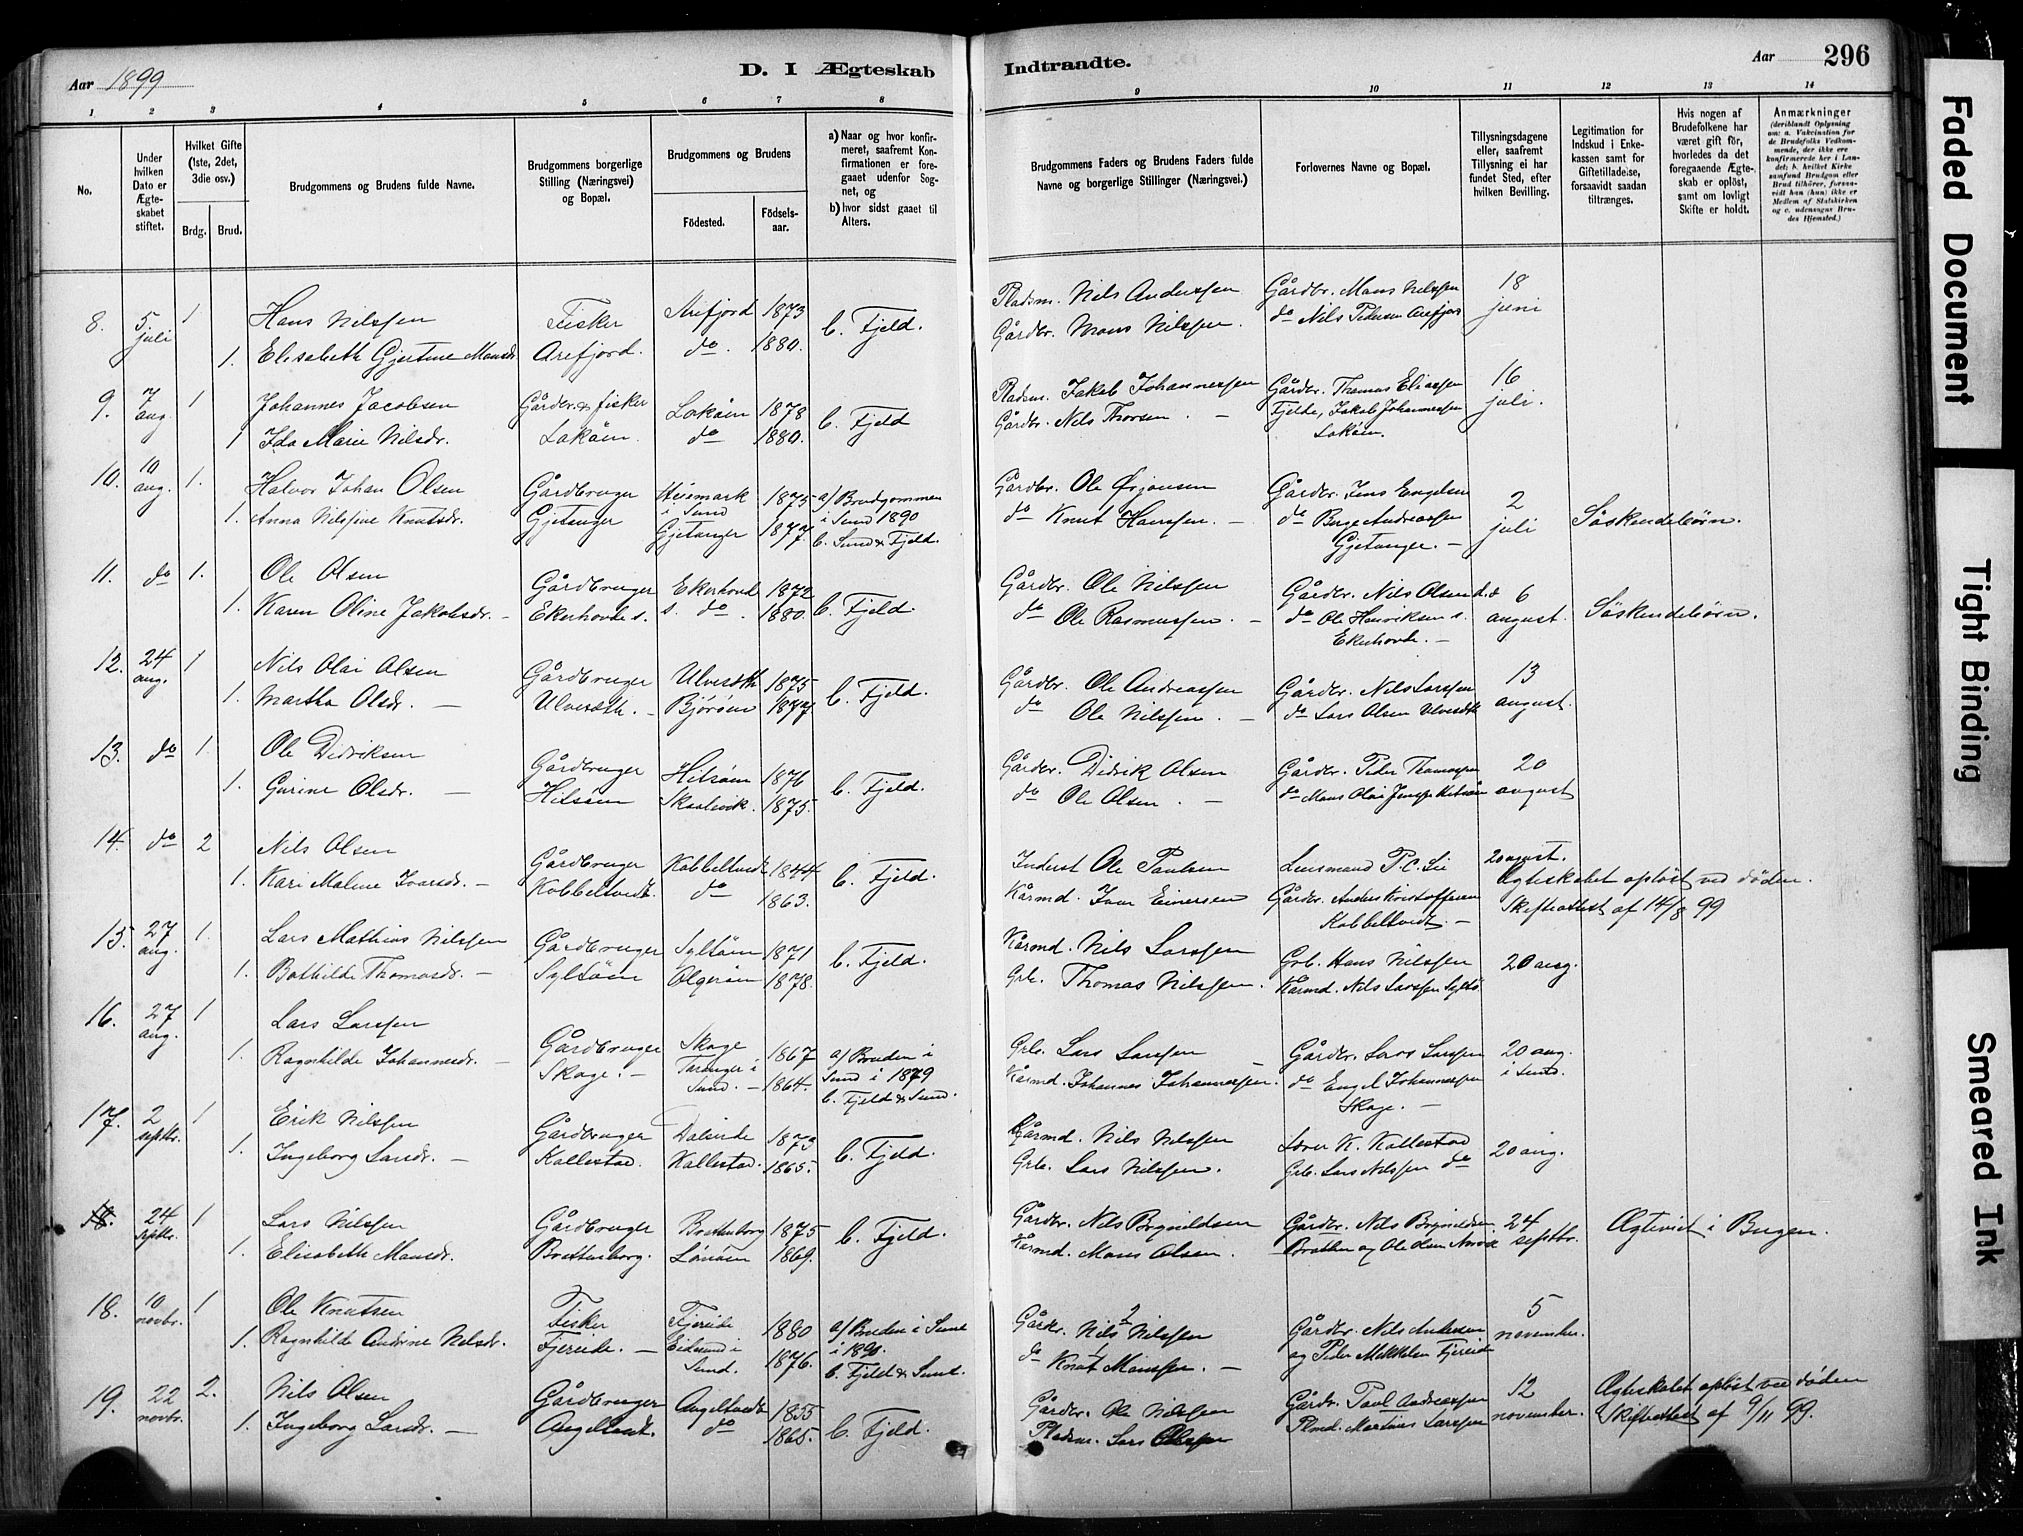 Aar 1899
D. I Ægteskab
Indtraadte.
Aar 296
1. 2 3 4 5 6 7 8 9 10 11 12 13 14
No.
Under hvilken Dato er Ægteskabet stiftet.
Hvilket Gifte (1ste, 2det, 3die osv.)
Brdg. Brud.
Brudgommens og Brudens fulde Navne.
Brudgommens borgerlige Stilling (Næringsvei) og Bopæl.
Brudgommens og Brudens
Födested. Födselsaar.
a) Naar og hvor konfirmeret, saafremt Konfirmationen er foregaaet udenfor Sognet, og
b) hvor sidst gaaet til Alters.
Brudgommens Faders og Brudens Faders fulde Navne og borgerlige Stillinger (Næringsvei.)
Forlovernes Navne og Bopæl.
Tillysningsdagene eller, saafremt Tillysning ei har fundet Sted, efter hvilken Bevilling.
Legitimation for Indskud i Enkekassen samt for Giftetilladelse, forsaavidt saadan tiltrænges.
Hvis nogen af Brudefolkene har været gift før, hvorledes da det foregaaende Ægteskab er opløst, samt om lovligt Skifte er holdt.
Anmærkninger
(deriblandt Oplysning om: a. Vakcination for de Brudefolks Vedkommende, der ikke ere konfirmerede her i Landet; b. hvilket Kirkesamfund Brudgom eller Brud tilhörer, forsaavidt han (hun) ikke er Medlem af Statskirken og c. udensogns Brudes Hjemsted.)
8. 5 juli 1 Hans Nilssen Fisker Arefjord 1873 b. Fjeld. Pladsm. Nils Anderssen Gårdbr. Mons Nilssen 18 juni
1. Elisabeth Gjertine Monsdr Arefjord. do. 1880. Gårdbr. Mons Nilssen. do Nils Pedersen Arefjord
9. 7 aug. 1 Johannes Jacobsen Gårdbr. & fisker Lokøen 1878 b. Fjeld Pladsm. Jakob Johannessen Gårdbr. Thomas Eliassen 16 juli.
1 Ida Marie Nilsdr. Lokøen. do 1880. Gårdbr. Nils Thorsen. Fjelde, Jakob Johannessen Lokøen.
10. 10 aug. 1. Halvor Johan Olsen Gårdbruger i Sund 1875 a) Brudgommen i Sund 1890 Gårdbr. Ole Ørjansen Gårdbr. Jens Engelsen 2 juli Söskendebörn.
1. Anna Nilssine Knutsdr. Gjetanger Gjetanger 1877. b. Sund & Fjeld. do Knut Hanssen. do Berge Andreassen Gjetanger.
11. do 1. Ole Olsen Gårdbruger Ekerhovde 1872 b. Fjeld. Gårdbr. Ole Nilssen Gårdbr. Nils Olsen 6 august. Söskendebörn.
1. Karen Oline Jakobsdr. Ekerhovde s. s. do. 1880. do Ole Rasmussen. do Ole Henriksen s. Ekerhovde.
12. 24 aug. 1 Nils Olai Olsen Gårdbruger Ulveseth 1875 b. Fjeld. Gårdbr. Ole Andreassen Gårdbr. Nils Larssen 13 august.
1. Martha Olsdr. Ulveseth. Bjørøen 1877 do Ole Nilssen. do Lars Olsen Ulveseth
13. do 1. Ole Didriksen Gårdbruger Hilsøen 1876 b. Fjeld. Gårdbr. Didrik Olsen Gårdbr. Peder Thomassen 20 august
1. Gurine Olsdr. Hilsøen Skaalevik. 1875. do Ole Olsen. do Mons Olai
14. do 2 Nils Olsen Gårdbruger Kobbeltvedt 1844 b. Fjeld. Inderst Ole Paulsen Lensmand P.C. Lie 20 august. Ægteskabet opløst ved døden.
1. Kari Malene Ivarsdr. Kobbeltvedt. do 1863. Kårmd. Ivar Einersen Gårdbr. Anders Kristoffersen Kobbeltvedt. Skifteattest af 14/8 99
15. 27 aug. 1. Lars Mathias Nilssen Gårdbruger Syltøen 1871 b. Fjeld. Kårmd. Nils Larssen Grb. Hans Nilssen 20 aug.
1. Bothilde Thomasdr. Syltøen Algerøen 1878. Grb. Thomas Nilssen. Kårmd. Nils Larssen Syltø
16. 27 aug. 1 Lars Larssen Gårdbruger Skoge 1867 a) Bruden i Sund i 1879 Grb. Lars Larssen Gårdbr. Lars Larssen 20 aug. i Sund.
1. Ragnhilde Johannesdr. Skoge. Toranger i Sund. 1864. b. Fjeld & Sund. Kårmd. Johannes Johannessen. do Engel Johannessen Skoge.
17. 2 septbr. 1 Erik Nilssen Gårdbruger Dalseide 1873 b. Fjeld. Kårmd. Nils Nilssen K. Kallestad 20 aug.
1. Ingeborg Larsdr. Kallestad. Kallestad. 1865. Grb. Lars Nilssen. Grb. Lars Nilssen do
18. 24 septbr. 1 Lars Nilssen Gårdbruger Brattenborg 1875 b. Fjeld. Gårdbr. Nils Brynildsen Gårdbr. Nils Brynildsen 24 septbr. Ægteviet i Bergen.
1. Elisabeth Monsdr. Brattenborg. Lønøen 1869. Kårmd. Mons Olsen. Bratten og Ole Olsen
18. 10 novbr. 1 Ole Knutsen Fisker Fjereide 1880 a) Bruden i Sund i 1890. Gårdbr. 2 Nils Nilssen Gårdbr. Nils Andersen 5 november.
1. Ragnhilde Andrine Nilsdr. Fjereide. Eidesund i Sund. 1876. b. Fjeld & Sund. do 1 Knut Monssen. og Peder Mikkelsen Fjereide
19. 22 novbr. 2. Nils Olsen Gårdbruger Angeltvedt 1855 b. Fjeld. Gårdbr. Ole Nilssen Gårdbr. Paul Andreassen 12 november. Ægteskabet opløst ved døden
1. Ingeborg Larsdr. Angeltvedt. do 1865. Pladsm. Lars Olsen Plmd. Martinus Larssen Skifteattest af 9/11 99.
Faded Document
Tight Binding
Smeared Ink